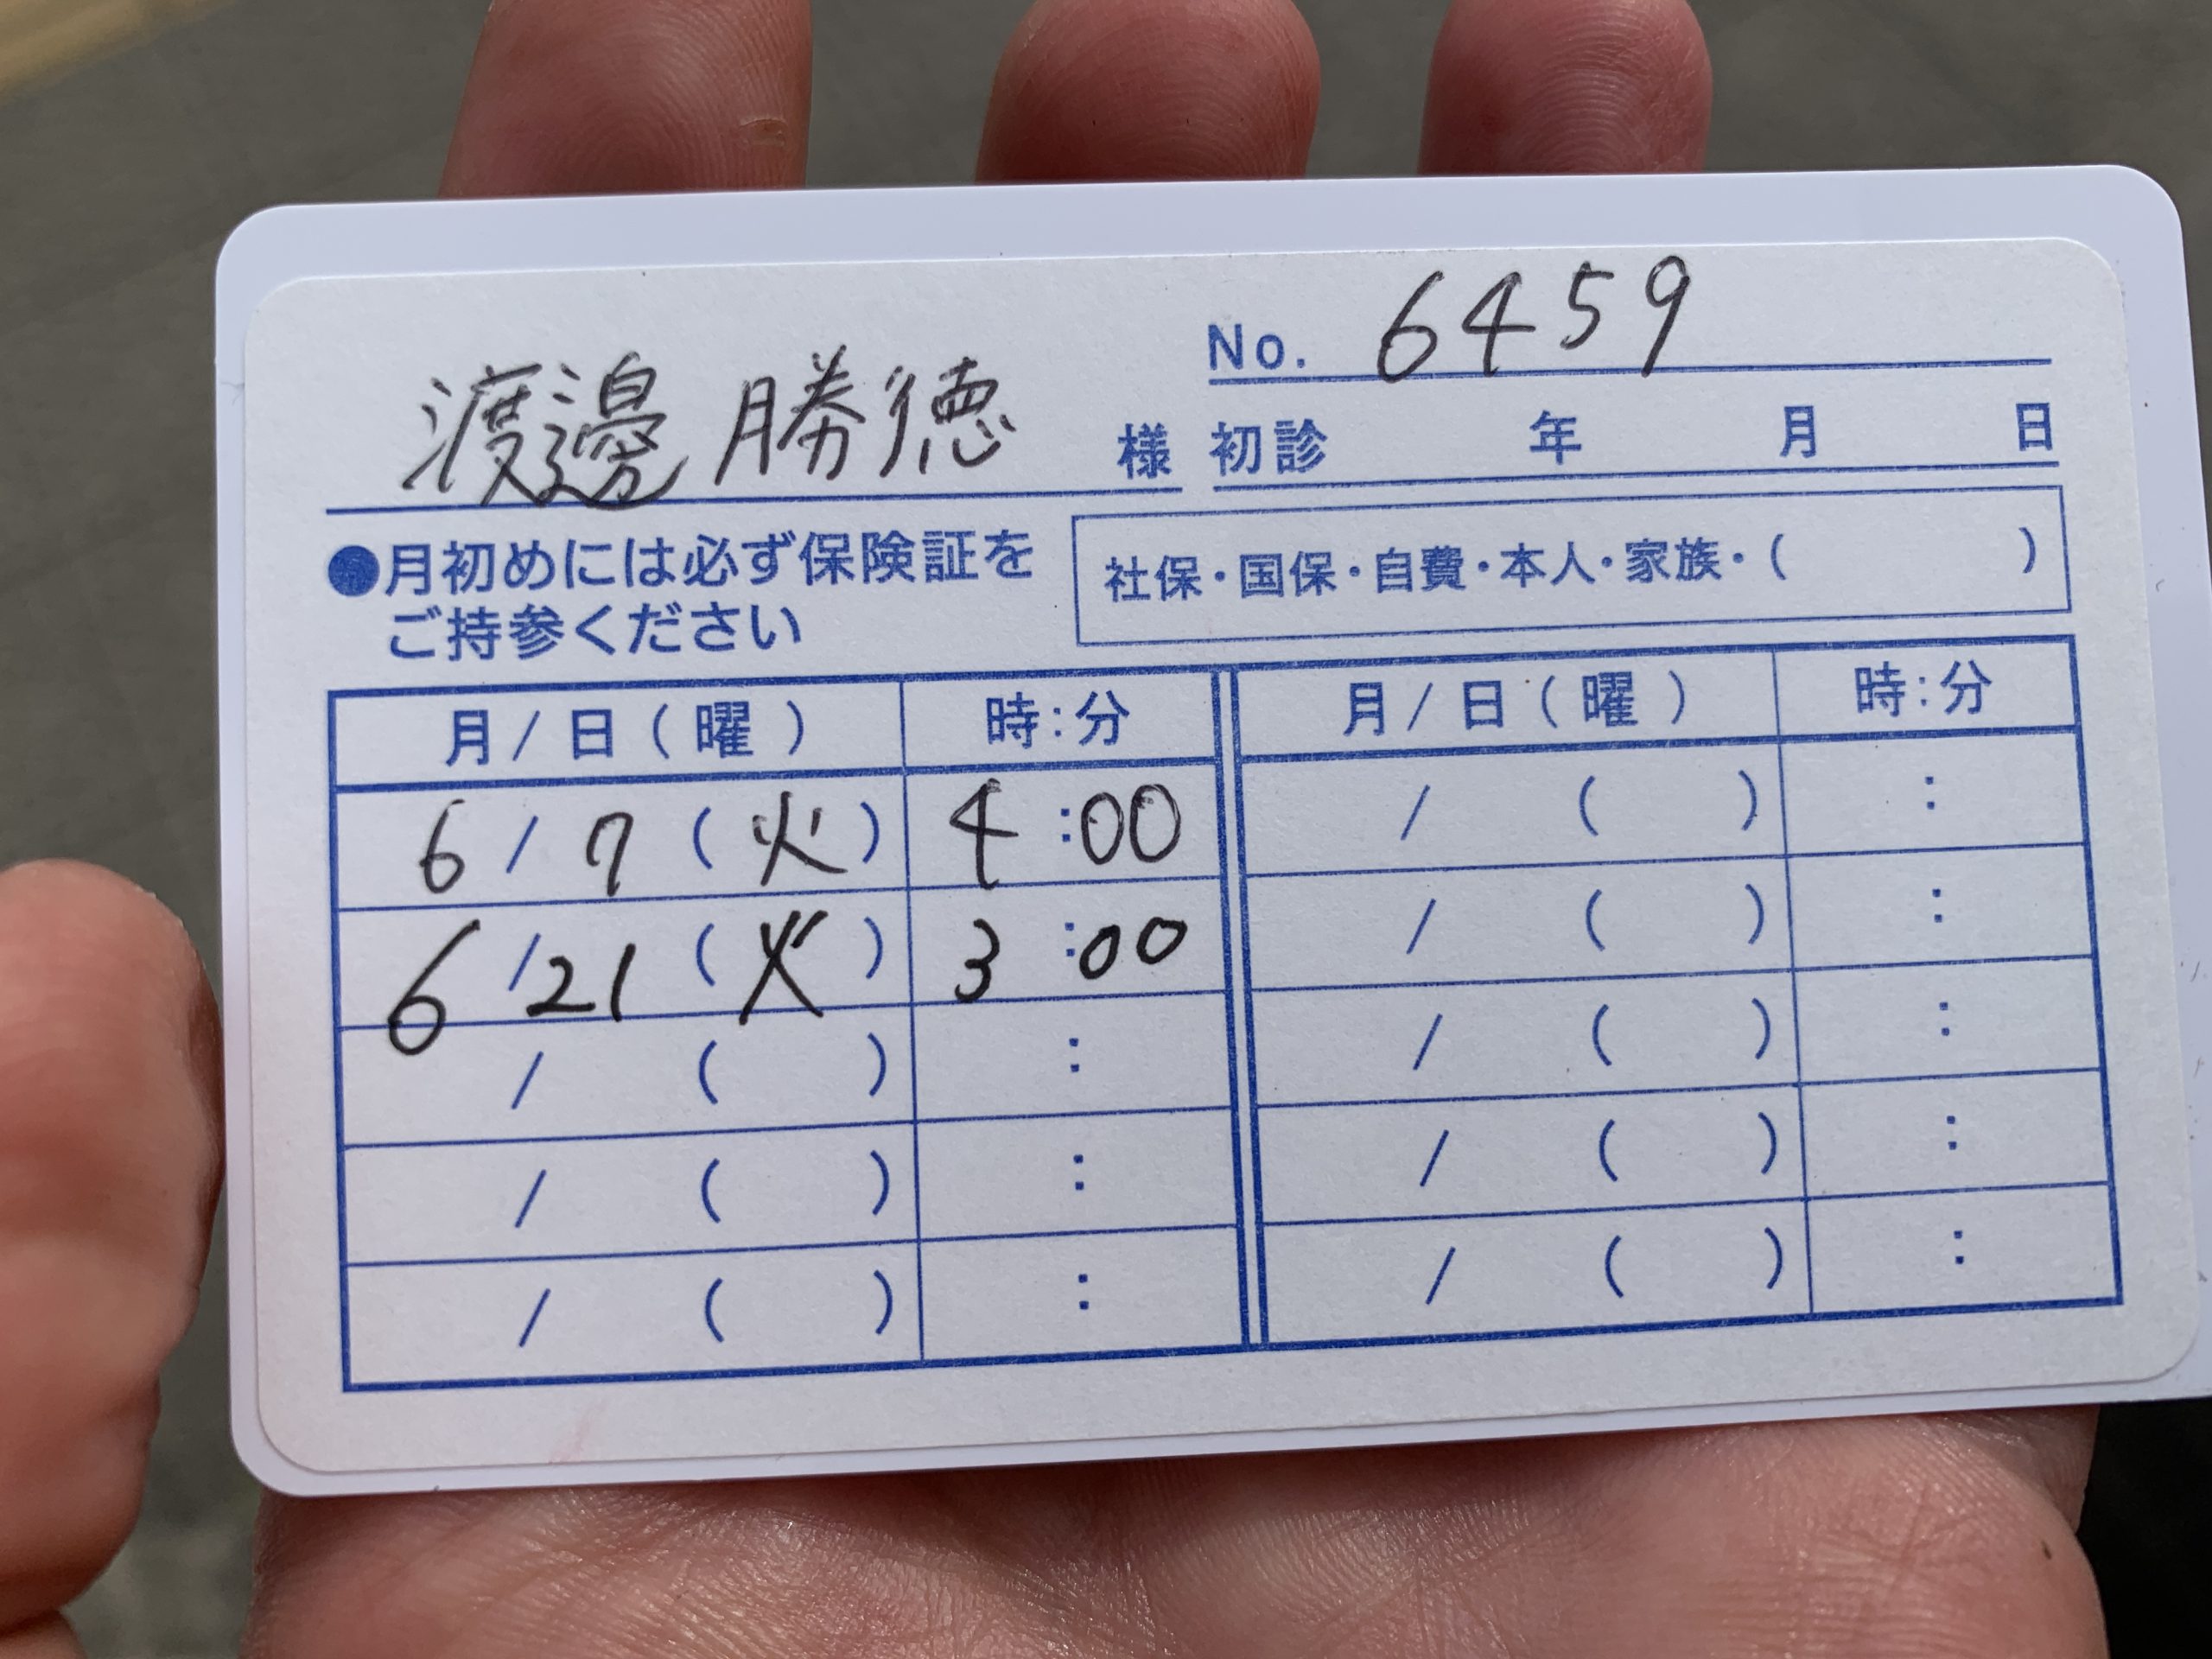 No. 6459
渡邊 勝徳 様
初診 年 月 日
●月初めには必ず保険証を
ご持参ください
社保・国保・自費・本人・家族・( )
月/日(曜) 時:分 月/日(曜) 時:分
6/7(火) 4:00 /( ) :
6/21(火) 3:00 /( ) :
/( ) : /( ) :
/( ) : /( ) :
/( ) : /( ) :